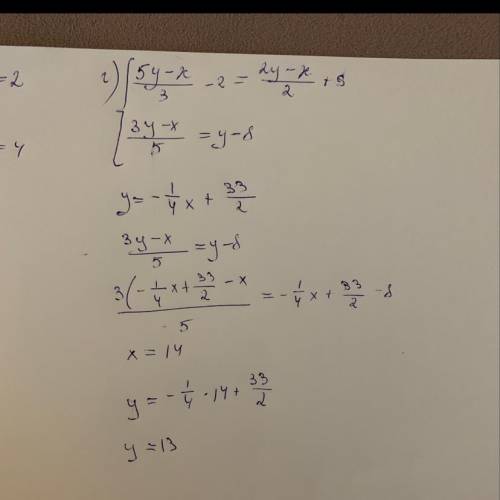 =2
=4
г) { (5y-x)/3 - 2 = (2y-x)/2 + 9
(3y-x)/5 = y-8
y = -1/4 x + 33/2
(3y-x)/5 = y-8
3(-1/4 x + 33/2 - x / 5 = -1/4 x + 33/2 - 8
x = 14
y = -1/4 · 14 + 33/2
y = 13